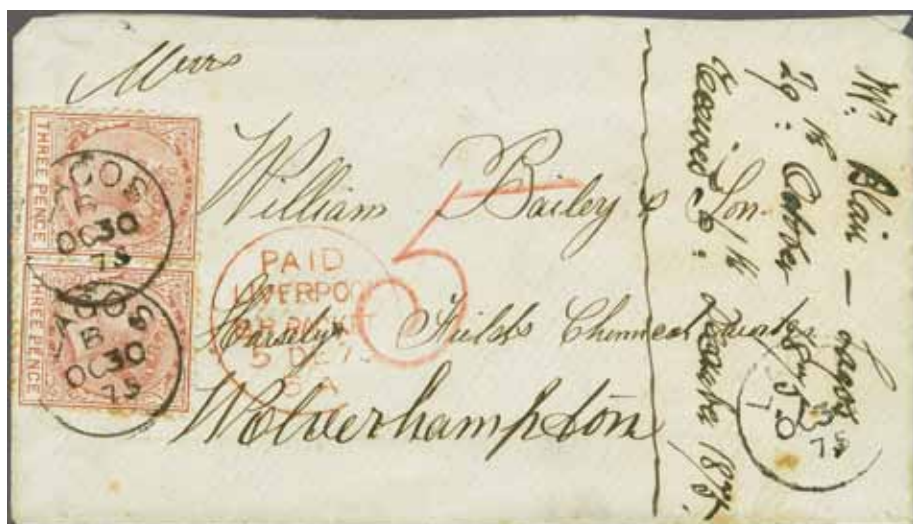 Messrs
William Bailey & Son
Horseley Fields Chemical Works
Wolverhampton
THREE PENCE
THREE PENCE
LAGOS
B
OC 30
75
LAGOS
B
OC 30
75
PAID
LIVERPOOL
BR. PACKET
5 DE 75
5A
5
Wm Blair — Lagos
29th October 1875
Received 6th December 1875.
75